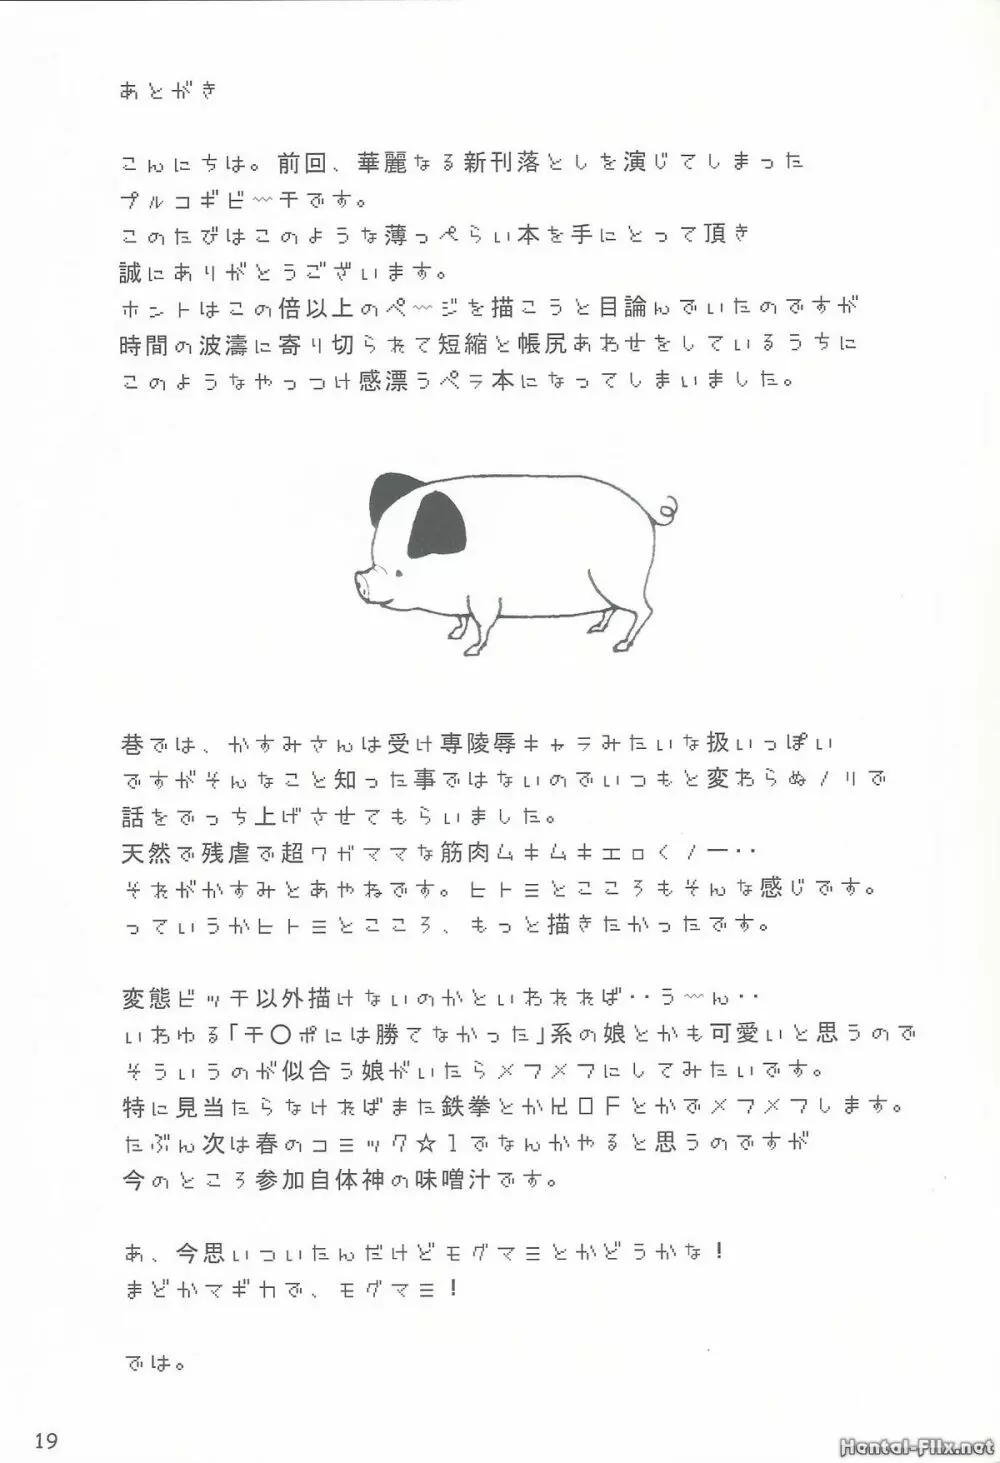 あとがき
こんにちは。前回、華麗なる新刊落としを演じてしまった
プルコギビ〜チです。
このたびはこのような薄っぺらい本を手にとって頂き
誠にありがとうございます。
ホントはこの倍以上のペ〜ジを描こうと目論んでいたのですが
時間の波濤に寄り切られて短縮と帳尻あわせをしているうちに
このようなやっつけ感漂うペラ本になってしまいました。
巷では、かすみさんは受け専陵辱キャラみたいな扱いっぽい
ですがそんなこと知った事ではないのでいつもと変わらぬノリで
話をでっち上げさせてもらいました。
天然で残虐で超ワガママな筋肉ムキムキエロくノ一‥
それがかすみとあやねです。ヒトミとこころもそんな感じです。
っていうかヒトミとこころ、もっと描きたかったです。
変態ビッチ以外描けないのかといわれれば‥う〜ん‥
いわゆる「チ〇ポには勝てなかった」系の娘とかも可愛いと思うので
そういうのが似合う娘がいたらメフメフにしてみたいです。
特に見当たらなければまた鉄拳とかKOFとかでメフメフします。
たぶん次は春のコミック☆1でなんかやると思うのですが
今のところ参加自体神の味噌汁です。
あ、今思いついたんだけどモグマミとかどうかな！
まどかマギカで、モグマミ！
では。
19
Hentai-Flix.net